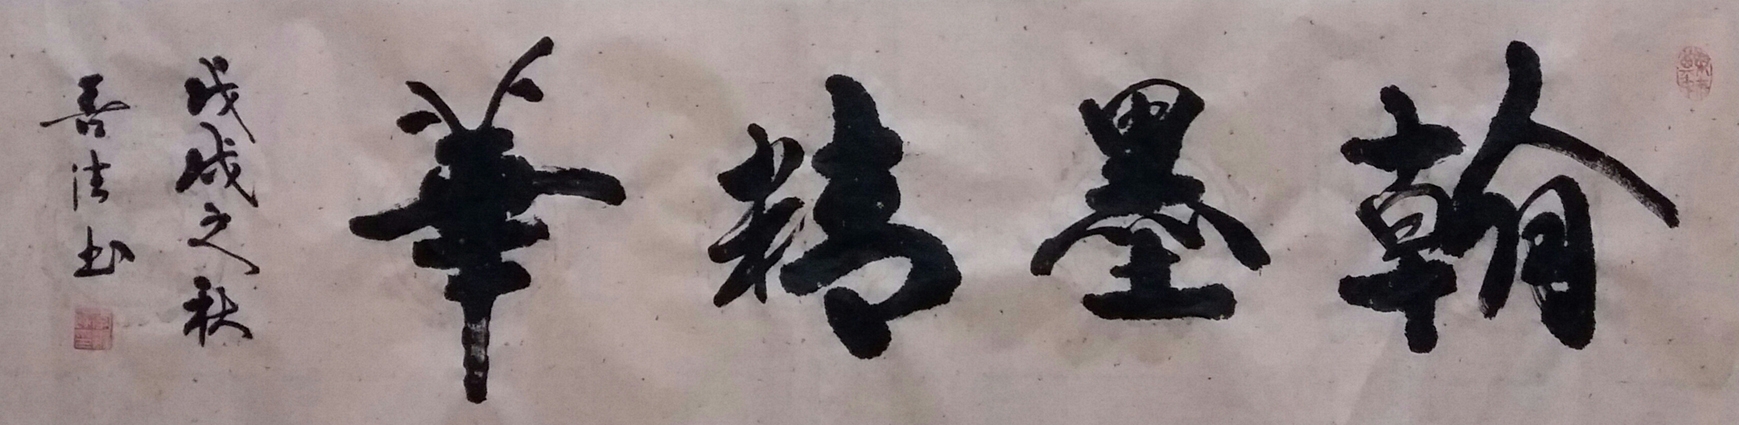 翰墨精華
戊戌之秋
善法书